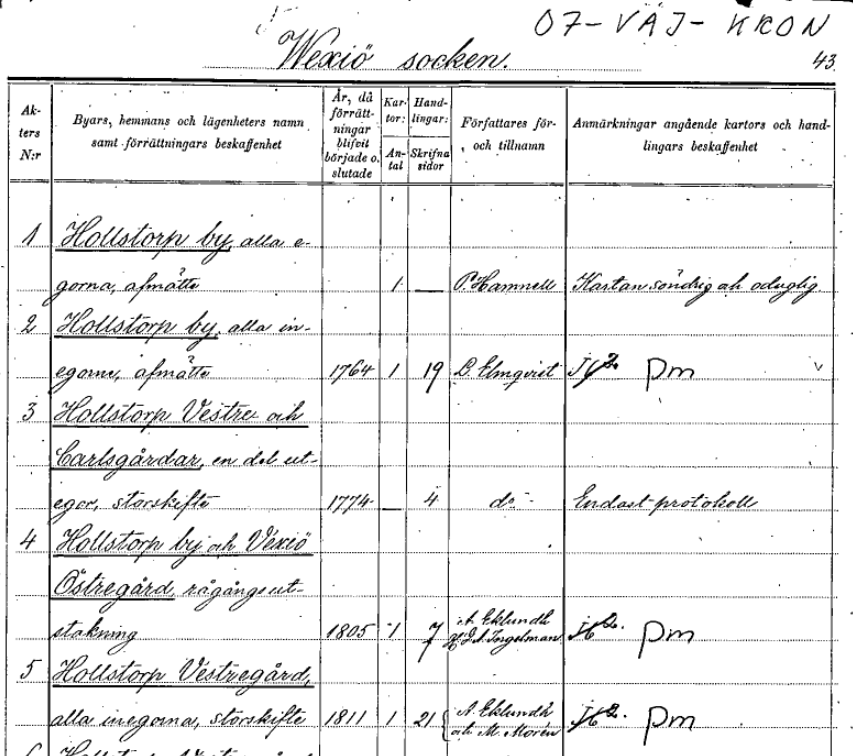 07-VÄJ-KRON
Wexiö socken.
43.
Ak-
ters
N:r
Byars, hemmans och lägenheters namn
samt förrättningars beskaffenhet
År, då
förrätt-
ningar
blifvit
började o.
slutade
Kar-
tor:
An-
tal
Hand-
lingar:
Skrifna
sidor
Författares för-
och tillnamn
Anmärkningar angående kartors och hand-
lingars beskaffenhet
1 Hollstorp by, alla e-
gorna, afmätte 1 — P. Hamnell Kartan söndrig och oduglig
2 Hollstorp by, alla in-
egorne, afmätte 1764 1 19 B. Elmqvist pm
3 Hollstorp Vestre och
Carlsgårdar, en del ut-
egor, storskifte 1774 — 4 do Endast protokoll
4 Hollstorp by och Vexiö
Östregård, rågångsut-
stakning 1805 1 7 A. Eklundh
Ingelman pm
5 Hollstorp Vestregård,
alla inegorna, storskifte 1811 1 21 A. Eklundh
och M. Morén pm